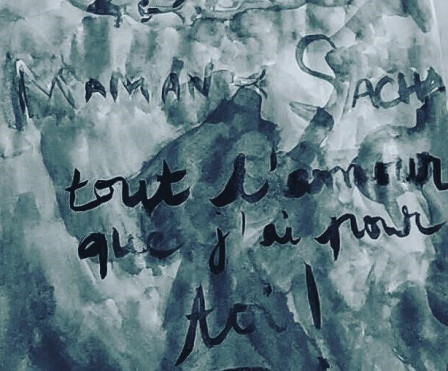 MAMAN SACHA
tout l'amour
que j'ai pour
toi !